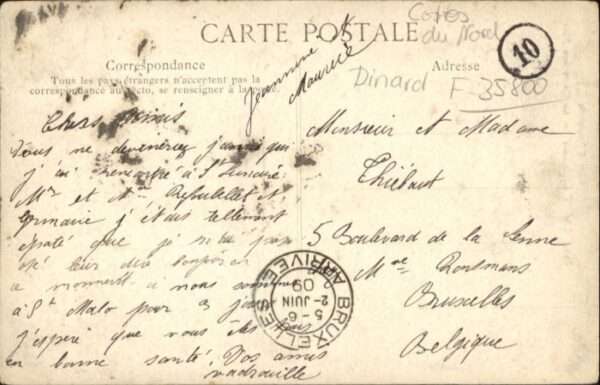 CARTE POSTALE
Cotes
du Nord
10
Correspondance
Adresse
Tous les pays étrangers n'acceptent pas la
correspondance au recto, se renseigner à la poste.
Dinard F 35800
Jeannine
Maurice
Chers Amis
Vous ne devenerez jamais qui
j'ai rencontré à St
Mr et Mme Reboullet N.
Germaine j'étais tellement
épaté que je n'ai pas
osé leur dire bonjour en
ce moment nous sommes
à St Malo pour 3 jours
j'espère que vous êtes tous
en bonne santé. Vos amis
vadrouille
Monsieur et Madame
Thiébaut
5 Boulevard de la Senne
Mme
Bruxelles
Belgique
BRUXELLES
ARRIVÉE
5-6
2-JUIN
09